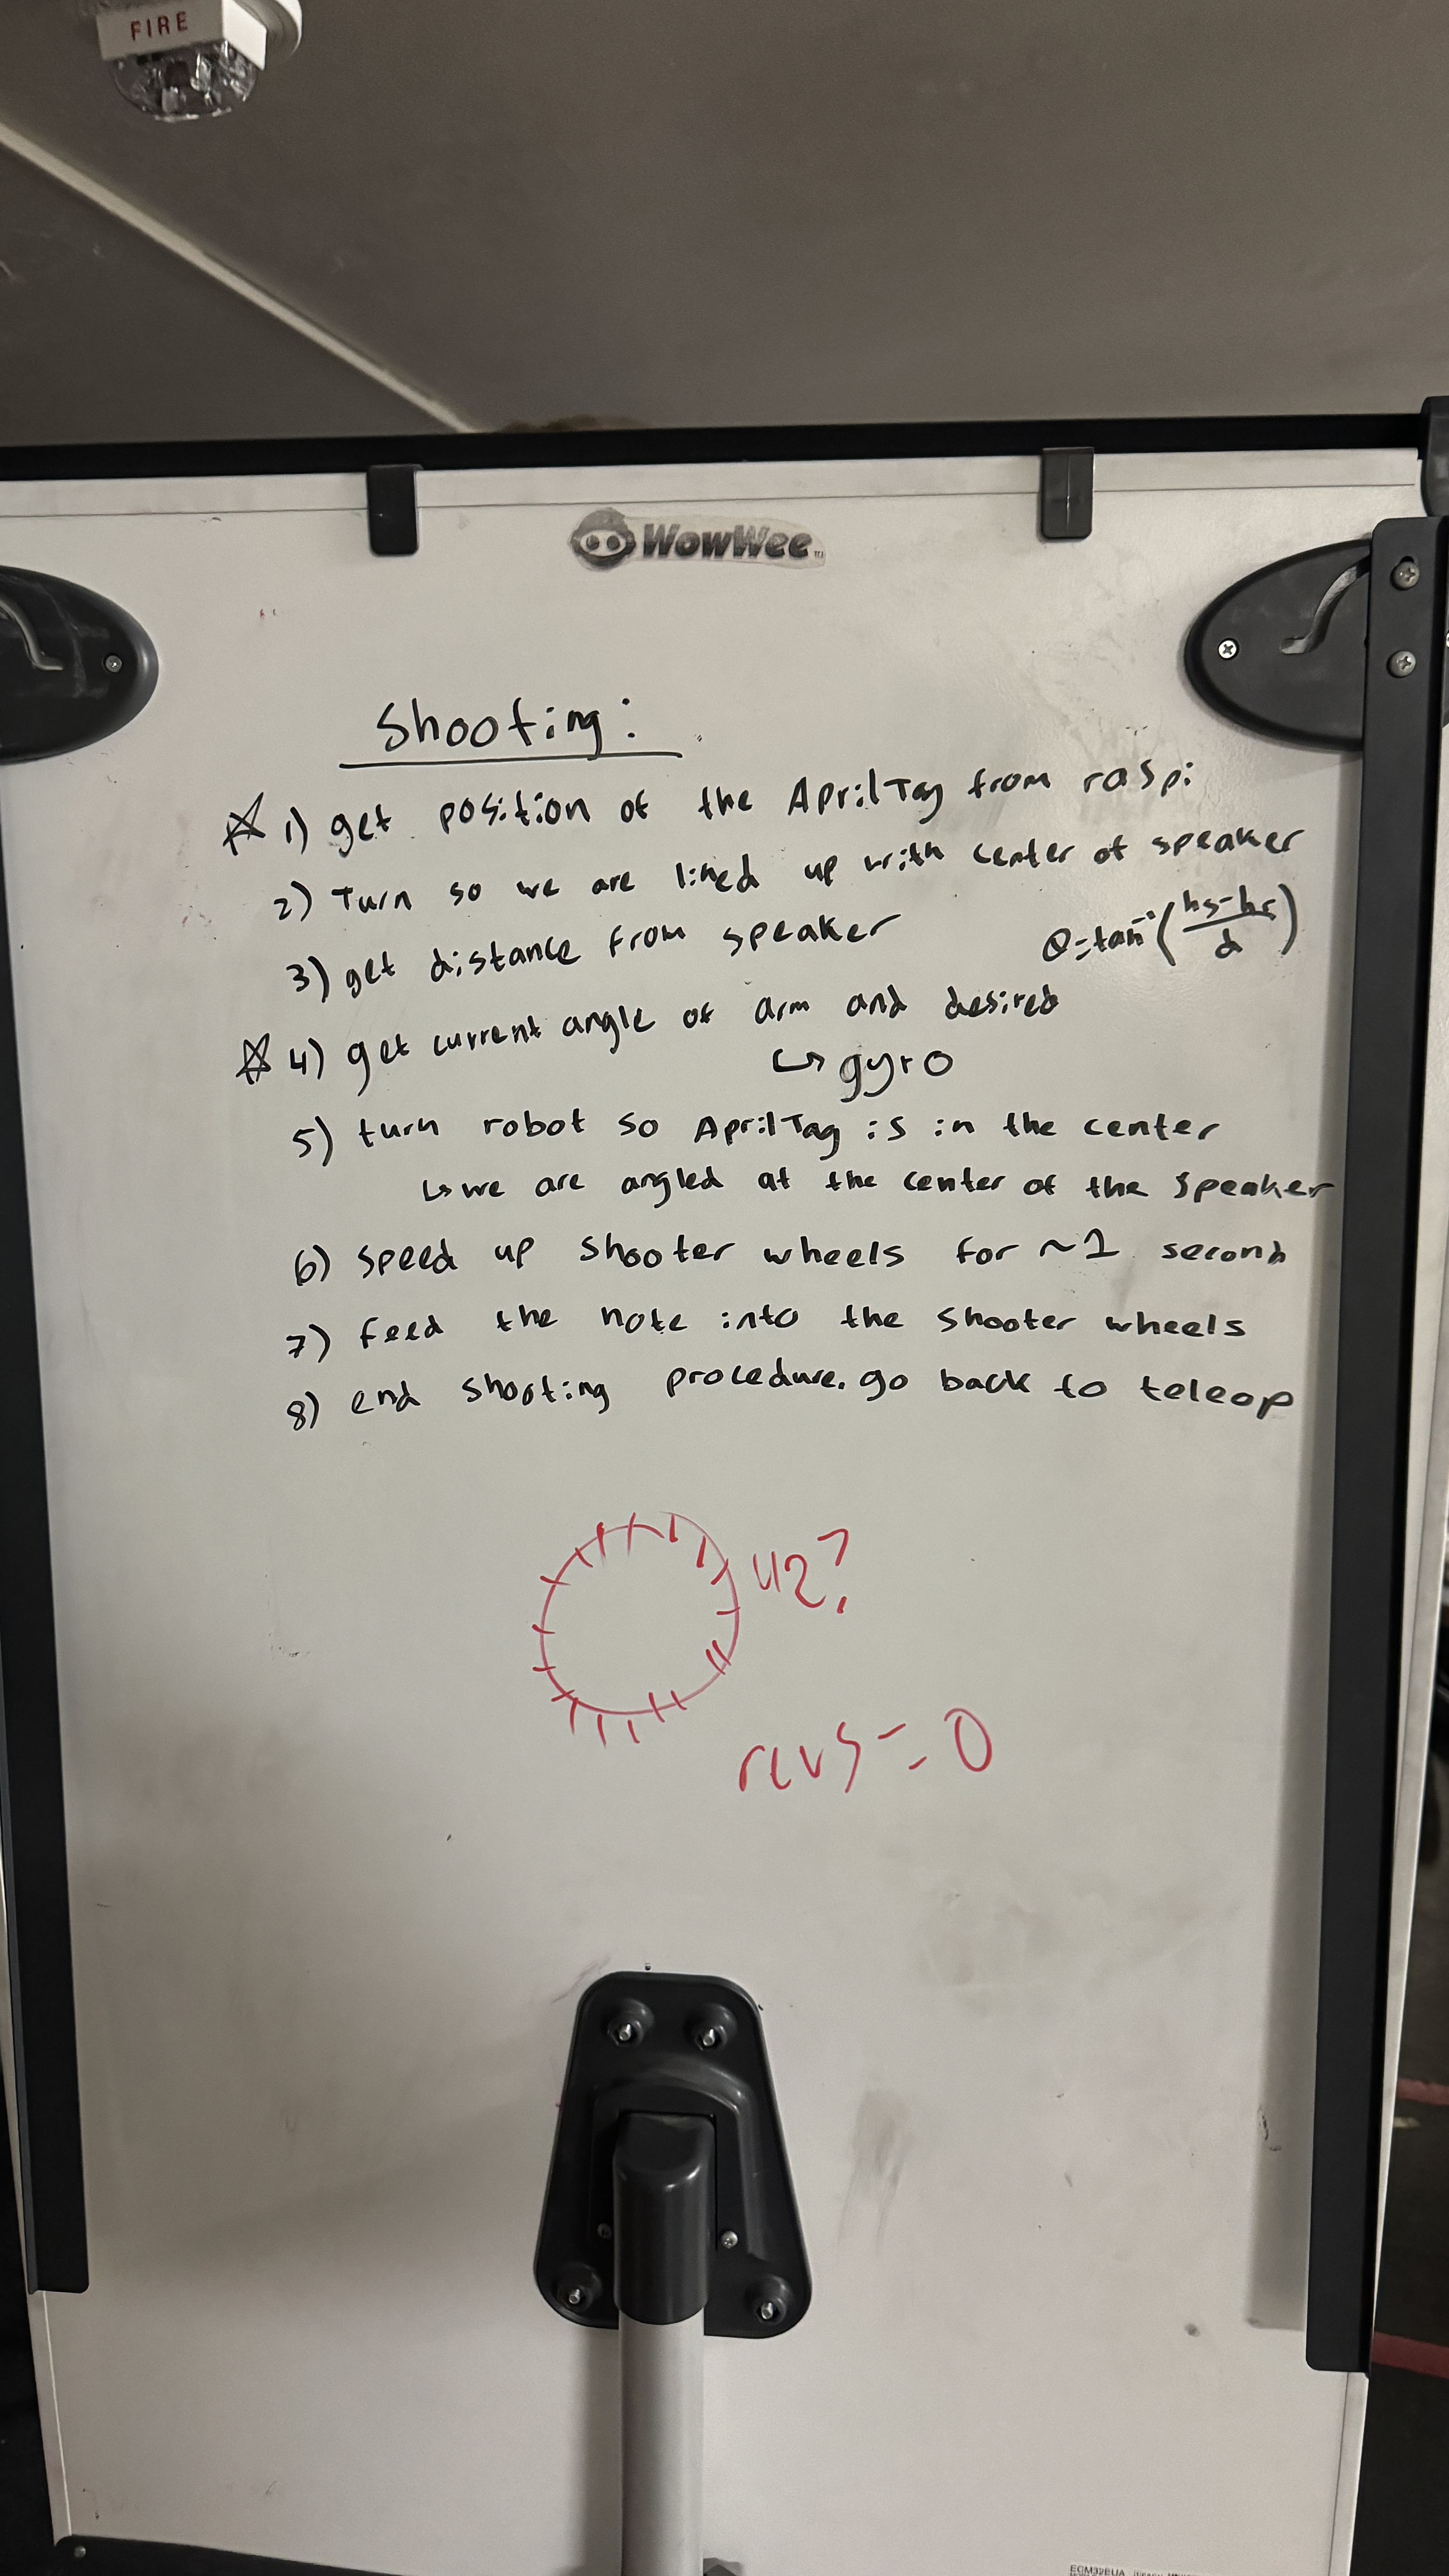 FIRE
WowWee
Shooting:
☆ 1) get position of the AprilTag from raspi
2) Turn so we are lined up with center of speaker
3) get distance from speaker
θ=tan⁻¹(hs-hr/d)
☆ 4) get current angle of arm and desired
↳ gyro
5) turn robot so AprilTag is in the center
↳ we are angled at the center of the speaker
6) speed up shooter wheels for ~1 second
7) feed the note into the shooter wheels
8) end shooting procedure. go back to teleop
42?
revs = 0